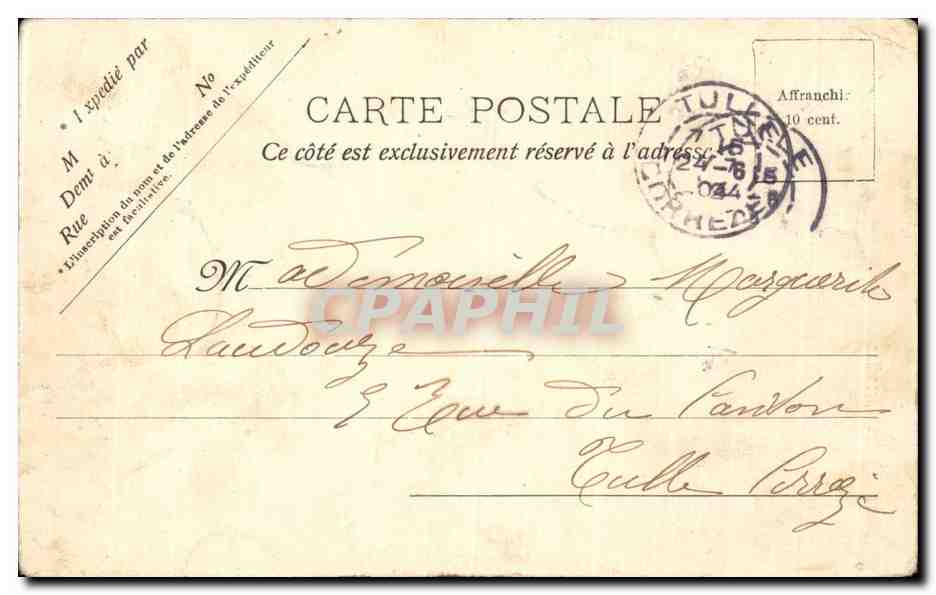 * Expedié par
M
Demt à
Rue
No
*L'inscription du nom et de l'adresse de l'expéditeur
est facultative.
CARTE POSTALE
Ce côté est exclusivement réservé à l'adresse
Affranchi.
10 cent.
TULLE
24 -6
CORREZE
Mademoiselle Marguerite
Laudouze
rue du
Tulle Corrèze
CPAPHIL